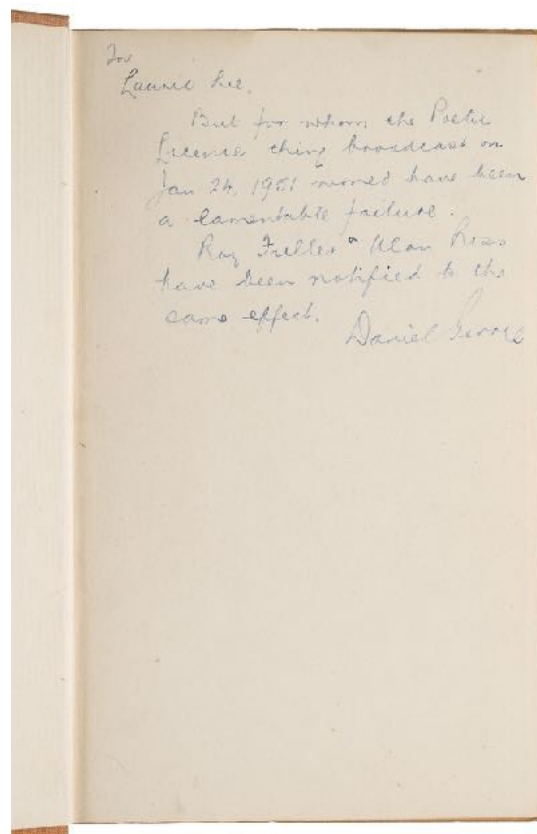 For
Laurie Lee.
But for whom the Poetic
Licence thing broadcast on
Jan 24, 1951 would have been
a lamentable failure.
Roy Fuller & Alan Ross
have been notified to the
same effect.
Daniel George